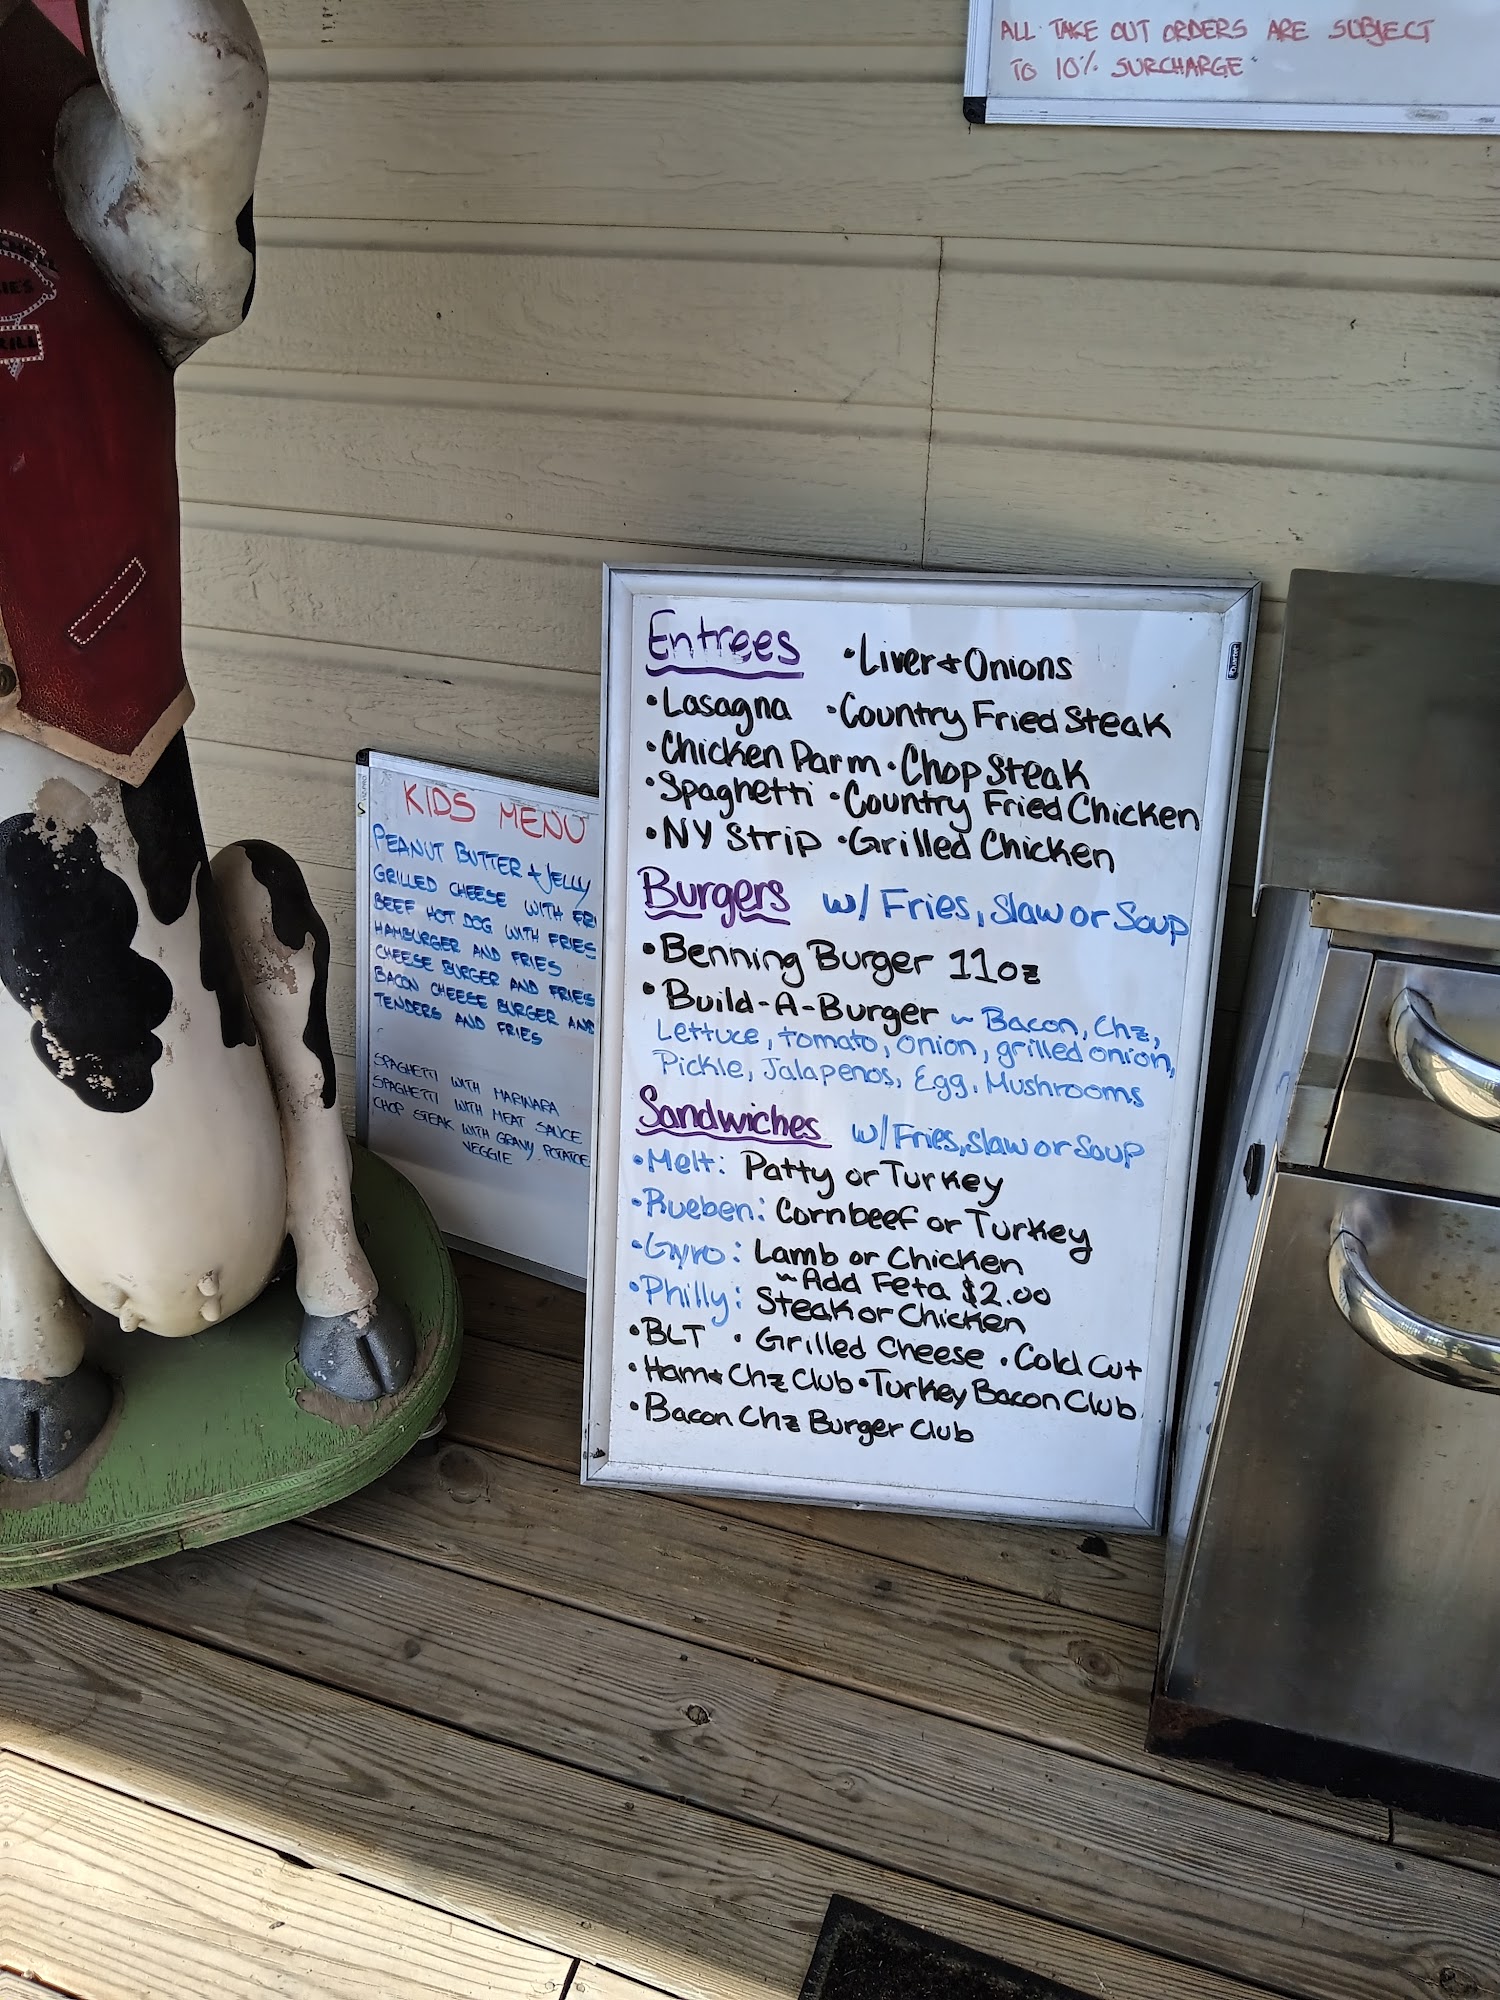 ALL TAKE OUT ORDERS ARE SUBJECT
TO 10% SURCHARGE
Entrees
• Liver & Onions
• Lasagna • Country Fried Steak
• Chicken Parm • Chop Steak
• Spaghetti • Country Fried Chicken
• NY Strip • Grilled Chicken
Burgers w/ Fries, Slaw or Soup
• Benning Burger 11oz
• Build-A-Burger ~ Bacon, Chz,
Lettuce, tomato, onion, grilled onion,
Pickle, Jalapenos, Egg, Mushrooms
Sandwiches w/ Fries, slaw or Soup
• Melt: Patty or Turkey
• Rueben: Cornbeef or Turkey
• Gyro: Lamb or Chicken
~ Add Feta $2.00
• Philly: Steak or Chicken
• BLT • Grilled Cheese • Cold Cut
• Ham & Chz Club • Turkey Bacon Club
• Bacon Chz Burger Club
KIDS MENU
PEANUT BUTTER & JELLY
GRILLED CHEESE WITH FRI
BEEF HOT DOG WITH FRIES
HAMBURGER AND FRIES
CHEESE BURGER AND FRIES
BACON CHEESE BURGER AND
TENDERS AND FRIES
SPAGHETTI WITH MARINARA
SPAGHETTI WITH MEAT SAUCE
CHOP STEAK WITH GRAVY POTATOE
VEGGIE
Quartet
IE'S
RILL